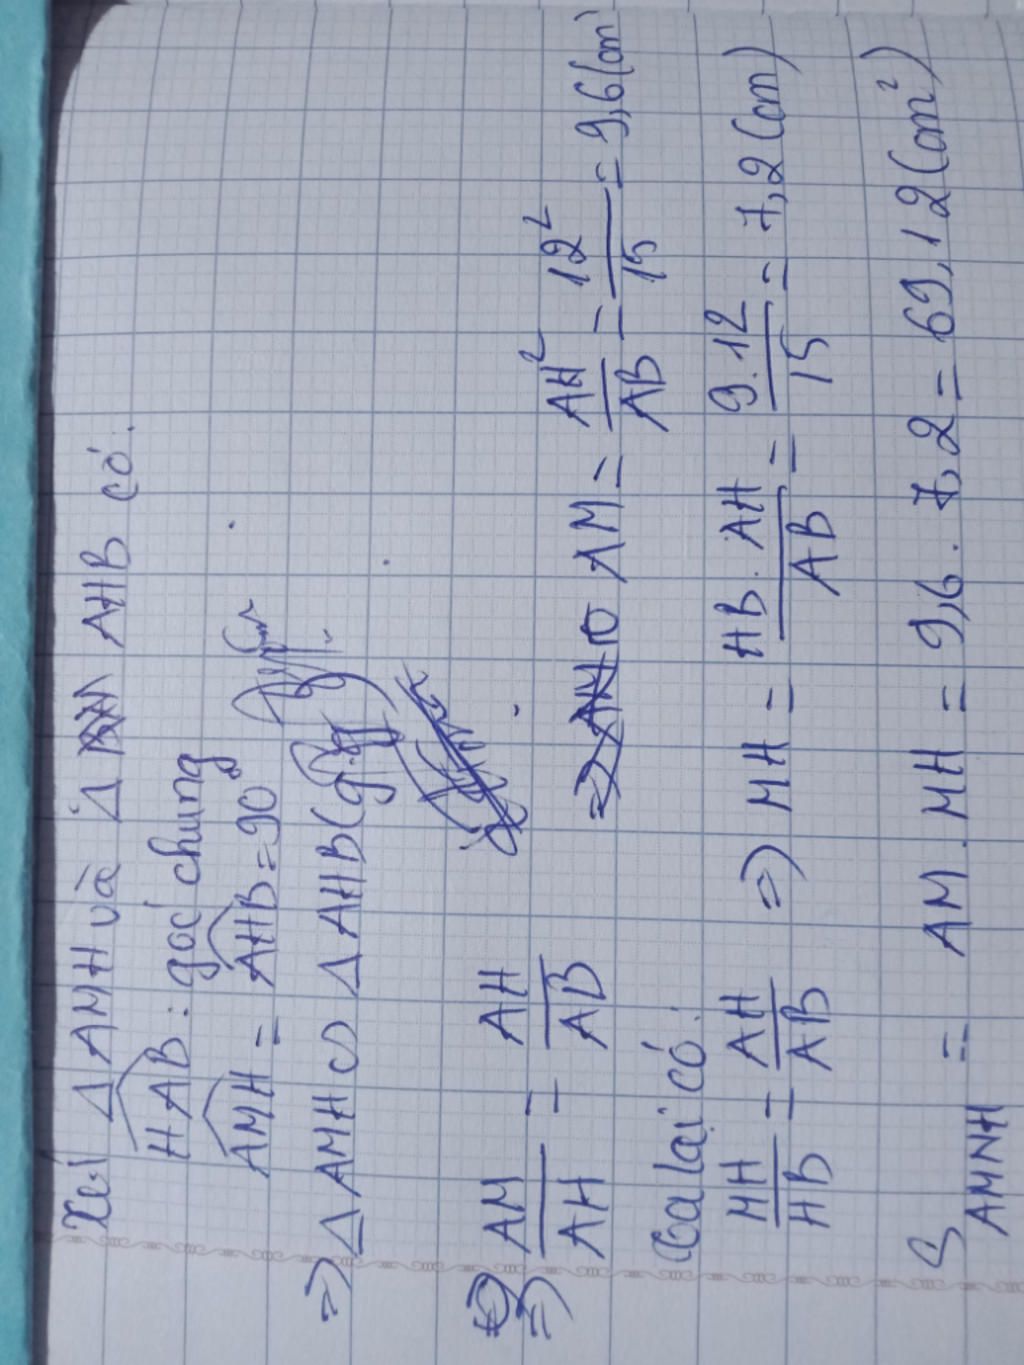 Xét Δ AMH và Δ AHB có:
HAB: góc chung
AMH = AHB = 90°
=> Δ AMH ∽ Δ AHB (g.g)
=> AM/AH = AH/AB => AM = AH²/AB = 12²/15 = 9,6 (cm)
Ta lại có:
MH/HB = AH/AB => MH = HB.AH/AB = 9.12/15 = 7,2 (cm)
S AMNH = AM.MH = 9,6.7,2 = 69,12 (cm²)